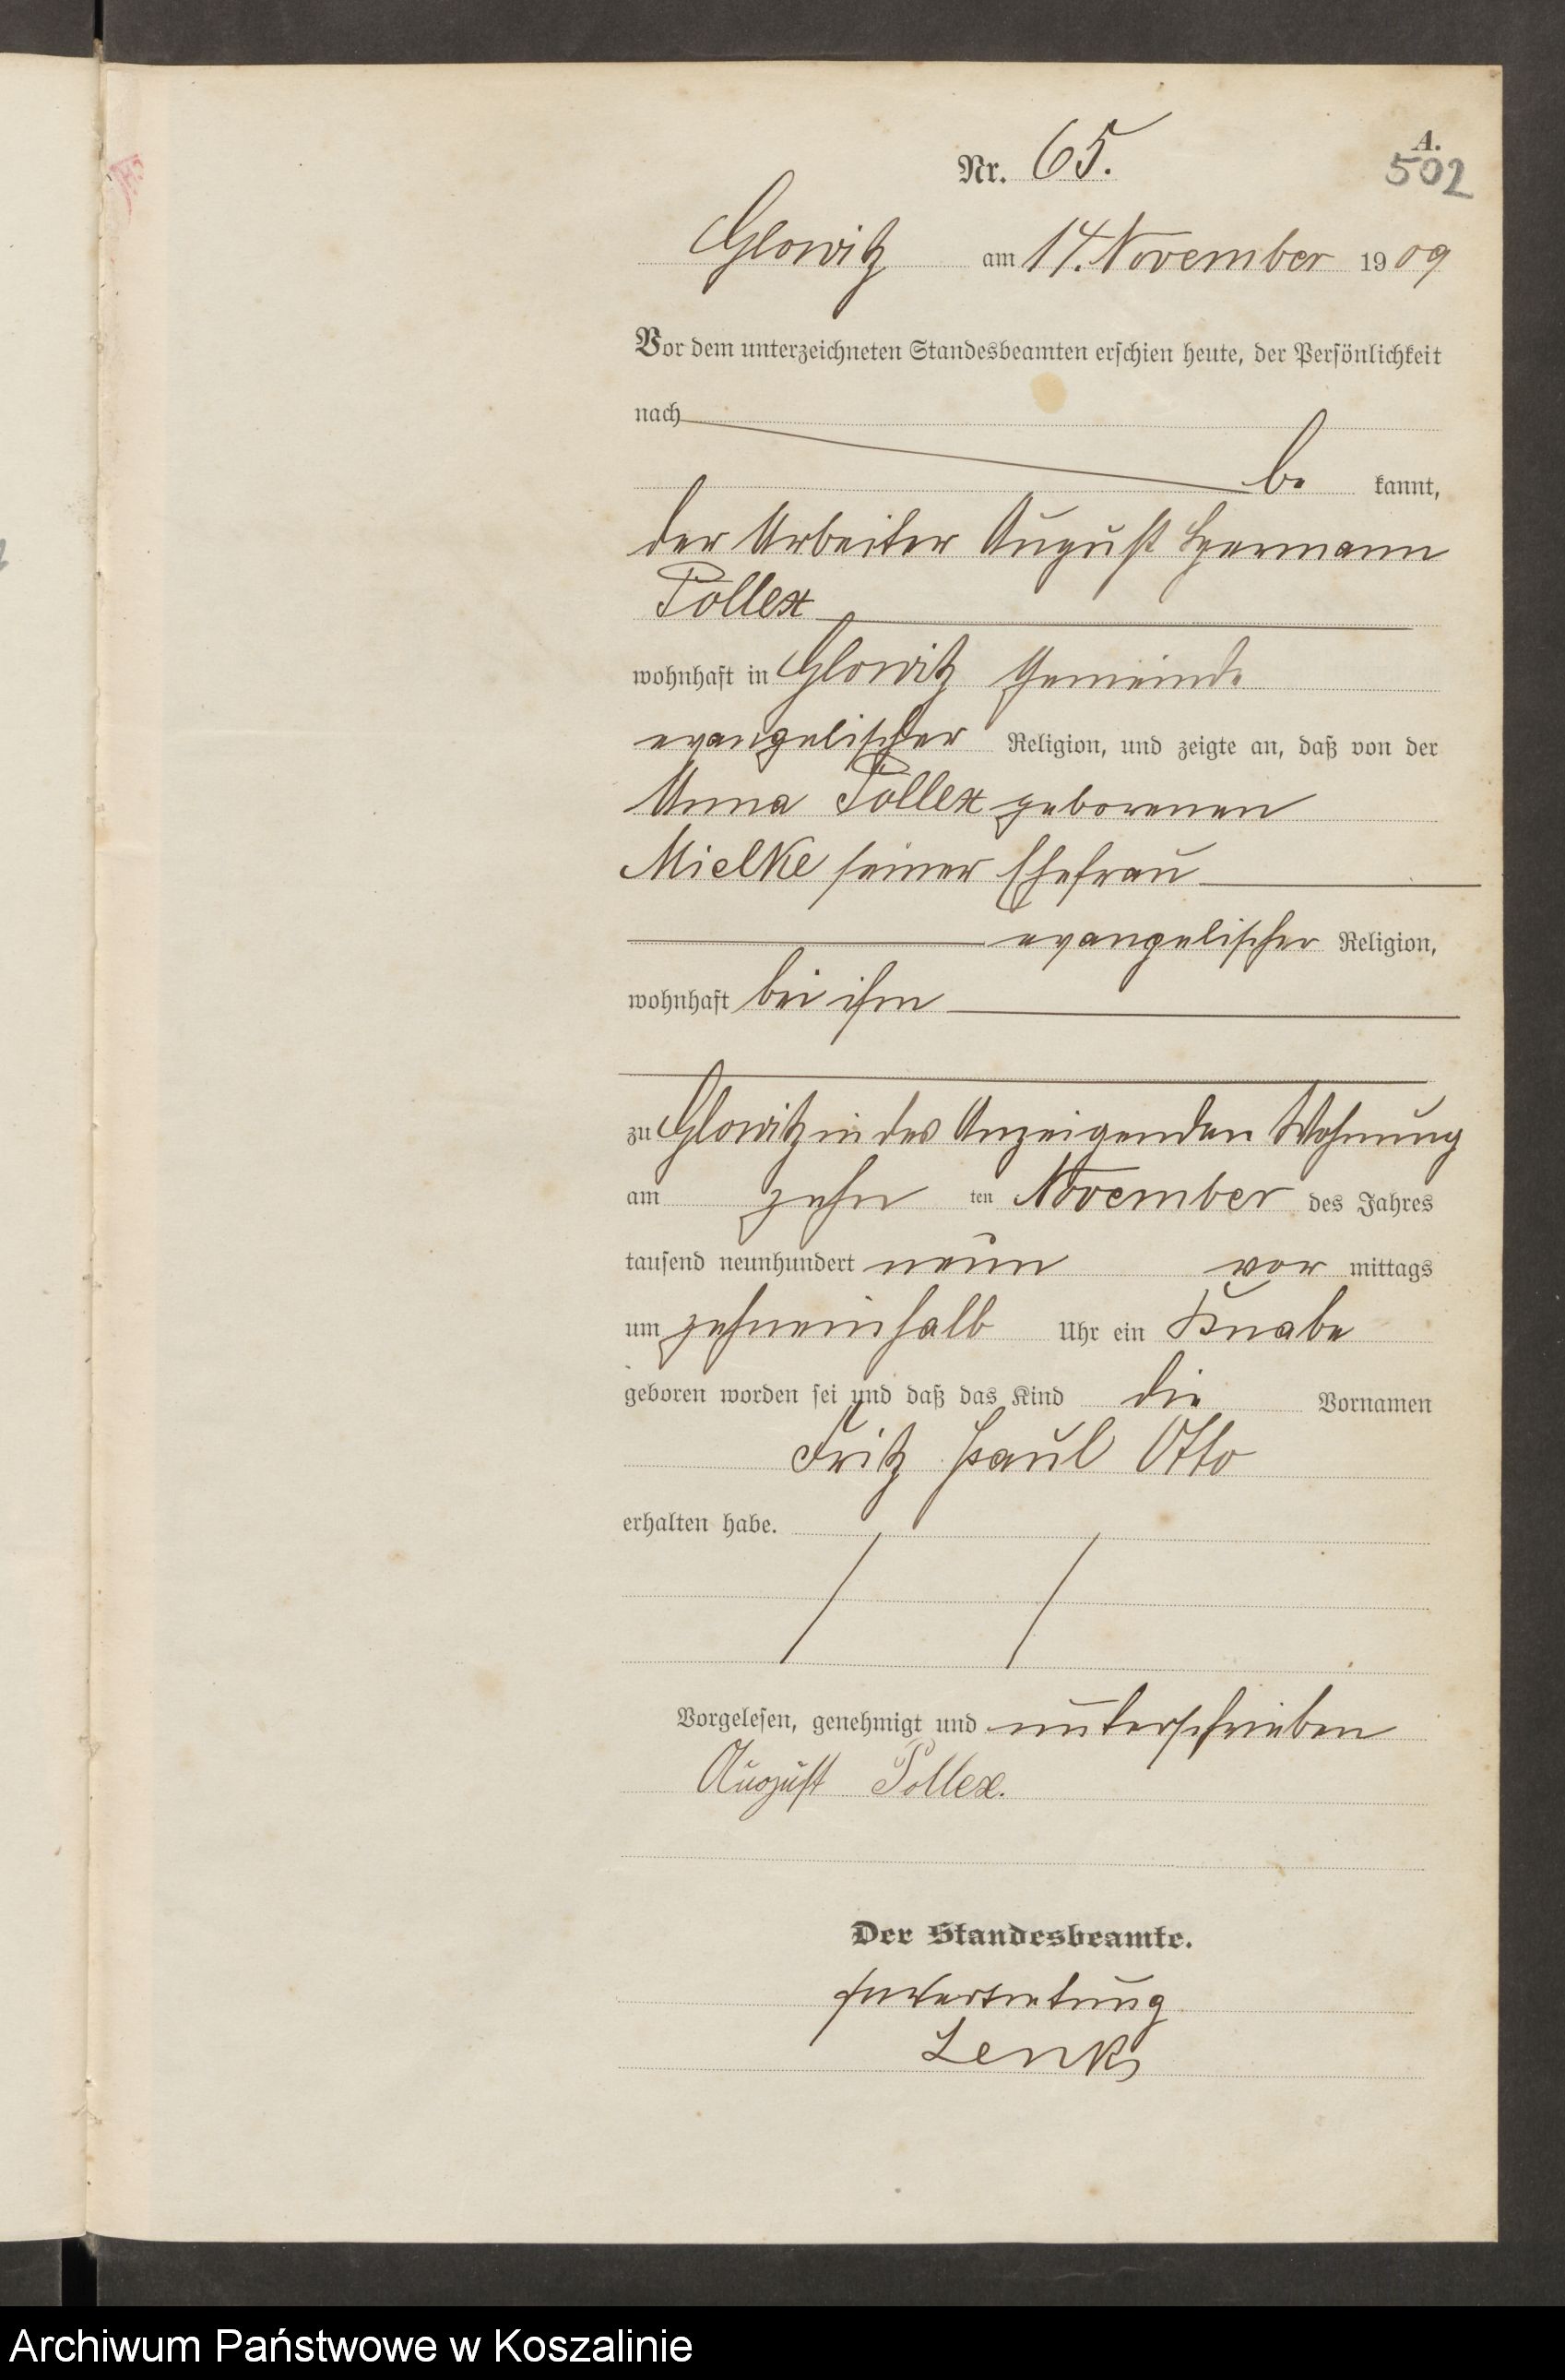 A.
502
Nr. 65.
Glowitz am 14. November 1909
Vor dem unterzeichneten Standesbeamten erschien heute, der Persönlichkeit
nach
be kannt,
der Arbeiter August Hermann
Pollex
wohnhaft in Glowitz Gemeinde
evangelischer Religion, und zeigte an, daß von der
Anna Pollex geborenen
Mielke seiner Ehefrau
evangelischer Religion,
wohnhaft bei ihm
zu Glowitz in des Anzeigenden Wohnung
am zehn ten November des Jahres
tausend neunhundert neun vor mittags
um zehneinhalb Uhr ein Knabe
geboren worden sei und daß das Kind die Vornamen
Fritz Paul Otto
erhalten habe.
Vorgelesen, genehmigt und unterschrieben
August Pollex.
Der Standesbeamte.
In Vertretung
Lenk
Archiwum Państwowe w Koszalinie